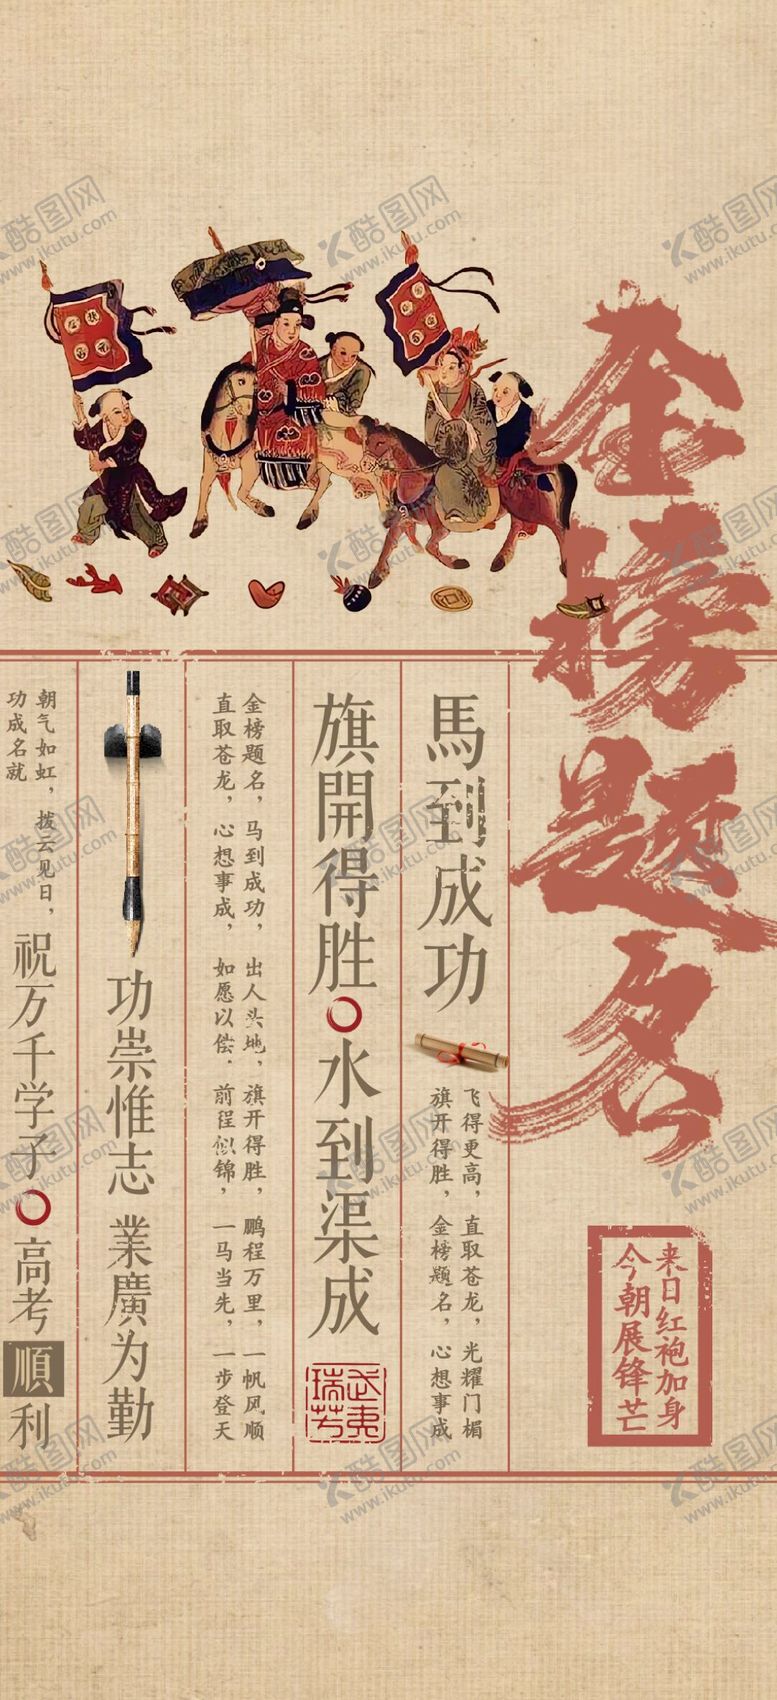 金榜题名
来日红袍加身
今朝展锋芒
馬到成功
飞得更高，直取苍龙，光耀门楣
旗开得胜，金榜题名，心想事成
旗開得胜
水到渠成
武夷
瑞芳
金榜题名，马到成功，出人头地，旗开得胜，鹏程万里，一帆风顺
直取苍龙，心想事成，如愿以偿．前程似锦，一马当先，一步登天
功崇惟志 業廣为勤
朝气如虹，拨云见日，
功成名就
祝万千学子
高考順利
酷图网
www.ikutu.com